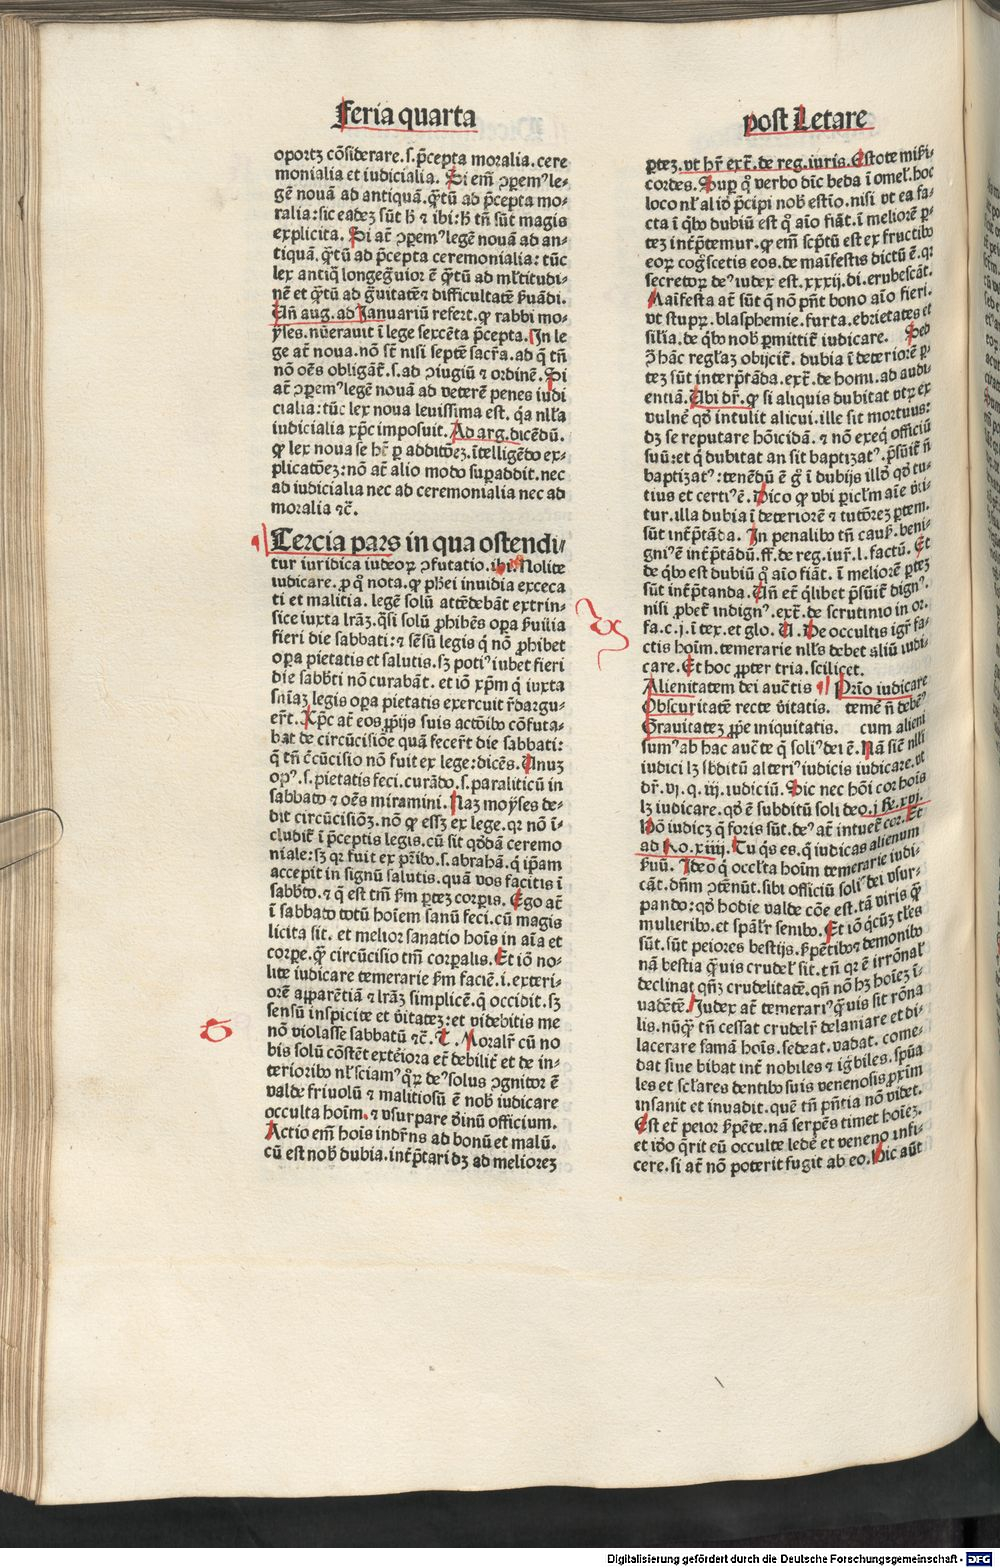 Feria quarta
oportꝫ cõsiderare.s.p̃cepta moralia.cere
monialia et iudicialia. Si em̃ ꝯpemꝰ le⸗
gẽ nouã ad antiquã. q̃tũ ad p̃cepta mo⸗
ralia: sic eadeꝫ sũt h̃ ⁊ ibi: h̃ tñ sũt magis
explicita. Si at̃ ꝯpemꝰ legẽ nouã ad an⸗
tiquã. q̃tũ ad p̃cepta ceremonialia: tũc
lex antiq̃ longe g̃uior ẽ q̃tũ ad ml̃titudi⸗
nẽ et q̃tũ ad g̃uitatẽ ⁊ difficultatẽ ẜuãdi.
Uñ aug. ad Januariũ refert. ꝙ rabbi mo⸗
yses. nũerauit ĩ lege sexcẽta p̃cepta. In le
ge at̃ noua. nõ st̃ nisi septẽ sacr̃a. ad q̃ tñ
nõ oẽs obligãt̃. s. ad ꝯiugiũ ⁊ ordinẽ. Si
at̃ ꝯpemꝰ legẽ nouã ad veterẽ penes iudi
cialia: tũc lex noua leuissima est. q̃a nl̃la
iudicialia xp̃c imposuit. Ad arg. dicẽdũ.
ꝙ lex noua se hꝫ ꝑ additõeꝫ. ĩtelligẽdo ex⸗
plicatõeꝫ: nõ at̃ alio modo supaddit. nec
ad iudicialia nec ad ceremonialia nec ad
moralia ⁊c̃.
Tercia pars in qua ostendi⸗
tur iuridica iudeoꝝ ꝯfutatio. ibi. Nolite
iudicare. ꝑ q̃ nota. ꝙ pħei inuidia exceca
ti et malitia. legẽ solũ attẽdebãt extrin⸗
sice iuxta lr̃aꝫ. q̃si solũ ꝓhibẽs oꝑa ẜuilia
fieri die sabbati: ⁊ sẽsũ legis q̃ nõ ꝓhibet
oꝑa pietatis et salutis. sꝫ potiꝰ iubet fieri
die sabb̃ti nõ curabãt. et iõ xp̃m q̃ iuxta
sñiaꝫ legis oꝑa pietatis exercuit r̃dargu⸗
er̃t. Xp̃c at̃ eos ꝓprijs suis actõib9 cõfuta⸗
bat de circũcisiõe quã fecer̃t die sabbati:
q̃ tñ c̃cũcisio nõ fuit ex lege: dicẽs. Unuꝫ
opꝰ. s. pietatis feci. curãdo. s. paraliticũ in
sabbato ⁊ oẽs miramini. Naꝫ moyses de⸗
dit circũcisiõꝫ. nõ ꝙ essꝫ ex lege. qꝛ nõ ĩ⸗
cludit̃ ĩ p̃ceptis legis. cũ sit q̃ddã ceremo
niale: sꝫ qꝛ fuit ex pr̃ib9. s. abrahã. q̃ ip̃am
accepit in signũ salutis. quã vos facitis ĩ
sabb̃to. ⁊ q̃ est tm̃ ẜm ꝑteꝫ corꝑis. Ego at̃
ĩ sabbato totũ hoĩem sanũ feci. cũ magis
licita sit. et melior sanatio hoĩs in aĩa et
corꝑe. q̃ circũcisio tm̃ corꝑalis. Et iõ no⸗
lite iudicare temerarie ẜm faciẽ. i. exteri⸗
orẽ apparẽtiã ⁊ lr̃aꝫ simplicẽ. q̃ occidit. sꝫ
sensũ inspicite et v̾itateꝫ: et videbitis me
nõ violasse sabbatũ ⁊c̃. T. Moralr̃ cũ no
bis solũ cõstẽt exteriora et̃ debilit̃ et de in⸗
teriorib9 nl̃ sciamꝰ q̃ꝝ deꝰ solus ꝯgnitor ẽ
valde friuolũ ⁊ malitiosũ ẽ nob̃ iudicare
occulta hoĩm. ⁊ vsurpare diuinũ officium.
Actio em̃ hoĩs indr̃ns ad bonũ et malũ.
cũ est nob̃ dubia. int̃p̃tari dꝫ ad melioreꝫ
post Letare
ꝑteꝫ. vt hr̃ ext̃. de reg. iuris. Estote mĩẜi⸗
cordes. Suꝑ q̃ verbo dĩc beda ĩ omel̃. hoc
loco nl̃ aliõ p̃cipi nob̃ estĩo. nisi vt ea fa⸗
cta ĩ q̃b9 dubiũ est q̃ aĩo fiãt. ĩ meliorẽ ꝑ⸗
teꝫ int̃p̃temur. ꝙ em̃ scp̃tũ est ex fructib9
eoꝝ cog̃scetis eos. de maĩfestis dictũ ẽ. qꝛ
secretoꝝ deꝰ iudex est. xxxij. di. erubescãt.
Maĩfesta at̃ sũt q̃ nõ pñt bono aĩo fieri.
vt stuprꝝ. blasphemie. furta. ebrietates et
sil̃ia. de q̃b9 nob̃ ꝑmittit̃ iudicare. Sed
ꝯ̃ hãc regl̃aꝫ obijcit̃. dubia ĩ deteriorẽ ꝑ⸗
teꝫ sũt interp̃tãda. ext̃. de homi. ad audi⸗
entiã. Ubi dr̃. ꝙ si aliquis dubitat vtꝝ ex
vulnẽ qð intulit alicui. ille sit mortuus:
dꝫ se reputare hõicidã. ⁊ nõ exeq̃ officiũ
suũ: et q̃ dubitat an sit baptizatꝰ. p̃sũit̃ ñ
baptizatꝰ: tenẽdũ ẽ g̃ ĩ dubijs illð qð tu⸗
tius et certiꝰ ẽ. Dico ꝙ vbi picl̃m aĩe v̾ti⸗
tur. illa dubia ĩ deteriorẽ ⁊ tutõreꝫ ꝑtem.
sũt int̃p̃tãda. In penalib9 tñ cauẜ. beni⸗
gniꝰ ẽ int̃p̃tãdũ. ff. de reg. iur̃. l. factũ. Et
de q̃b9 est dubiũ q̃ aĩo fiãt. ĩ meliorẽ ꝑteꝫ
sũt int̃p̃tanda. Uñ et̃ q̃libet p̃sũit̃ dignꝰ.
nisi ꝓbet̃ indignꝰ. ext̃. de scrutinio in or.
fa. c. j. ĩ tex. et glo. U. De occultis igr̃ fa⸗
ctis hoĩm. temerarie nl̃l̃s debet aliũ iudi⸗
care. Et hoc ꝓpter tria. scilicet.
Alienitatem dei auc̃tis Prĩo iudicare
Obscuritatẽ recte v̾itatis. temẽ ñ debẽꝰ
Grauitateꝫ ꝓṕe iniquitatis. cum alieni
sumꝰ ab hac auc̃te q̃ soliꝰ dei ẽ. Nã siẽ nl̃li
iudici lꝫ sb̃ditũ alteriꝰ iudicis iudicare. vt
dr̃. vj. q. iij. iudiciũ. Sic nec hõi cor hoĩs
lꝫ iudicare. qð ẽ subditũ soli deo. j. Re. xvj.
Hõ iudicꝫ q̃ foris sũt. deꝰ at̃ intuet̃ cor. Et
ad Ro. xiiij. Tu q̃s es. q̃ iudicas alienum
ẜuũ. Ideo q̃ occl̃ta hoĩm temerarie iudi⸗
cãt. dñm ꝯtẽnũt. sibi officiũ soliꝰ dei vsur⸗
pando: qð hodie valde cõe est. tã viris q̃
mulierib9. et sp̃alr̃ senib9. Et iõ q̃cũꝫ tl̃es
sũt. sũt peiores bestijs. ẜpẽtib9 ⁊ demonib9
nã bestia q̃uis crudel̃ sit. tñ qꝛ ẽ irrõnal̃
declinat qñꝫ crudelitatẽ. qñ nõ hꝫ hoĩeꝫ ĩ⸗
uadẽtẽ. Iudex at̃ temerariꝰ q̃uis sit rõna
lis. nũq̃ tñ cessat crudelr̃ delaniare et di⸗
lacerare famã hoĩs. sedeat. vadat. come⸗
dat siue bibat int̃ nobiles ⁊ ig̃biles. sp̃ua
les et scl̃ares dentib9 suis venenosis ꝓxim
insanit et inuadit. quẽ tñ pñtia nõ videt.
Est et̃ peior ẜpẽte. nã serpẽs timet hoĩeꝫ.
et iðo q̃rit eũ occulte ledẽ et veneno infi⸗
cere. si at̃ nõ poterit fugit ab eo. Sic aũt
Digitalisierung gefördert durch die Deutsche Forschungsgemeinschaft - DFG